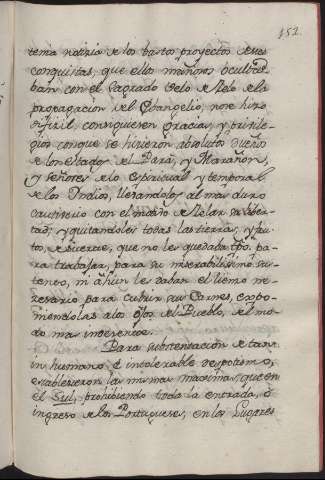 152.
tema notizia de los bastos proyectos de sus
conquistas, que ellos mañosos oculta-
ban con el Sagrado velo de Zelo de la
propagacion del Evangelio, no se hizo
dificil consiguiesen gracias, y privile-
gios con que se hizieron absolutos Dueños
de los Estados del Pará, y Marañon,
y señores de lo espiritual y temporal
de los Indios, llevandolos al mas duro
cautiverio con el modo de Zelar su liber-
tad; y quitandoles todas las tierras, y fru-
tos, de suerte, que no les quedaba tpo. pa-
ra trabajar, para su miserabilissimo sus-
tento, ni ahun les daban el lienzo ne-
zesario para cubrir sus Carnes, expo-
niendolas a los ojos del Pueblo, del mo-
do mas indecente.
Para substentacion de tan
in humano, é intolerable despotismo,
establesieron las mismas maximas, que en
el Sul, prohibiendo toda la entrada, é
ingreso de los Portugueses, en los Lugares